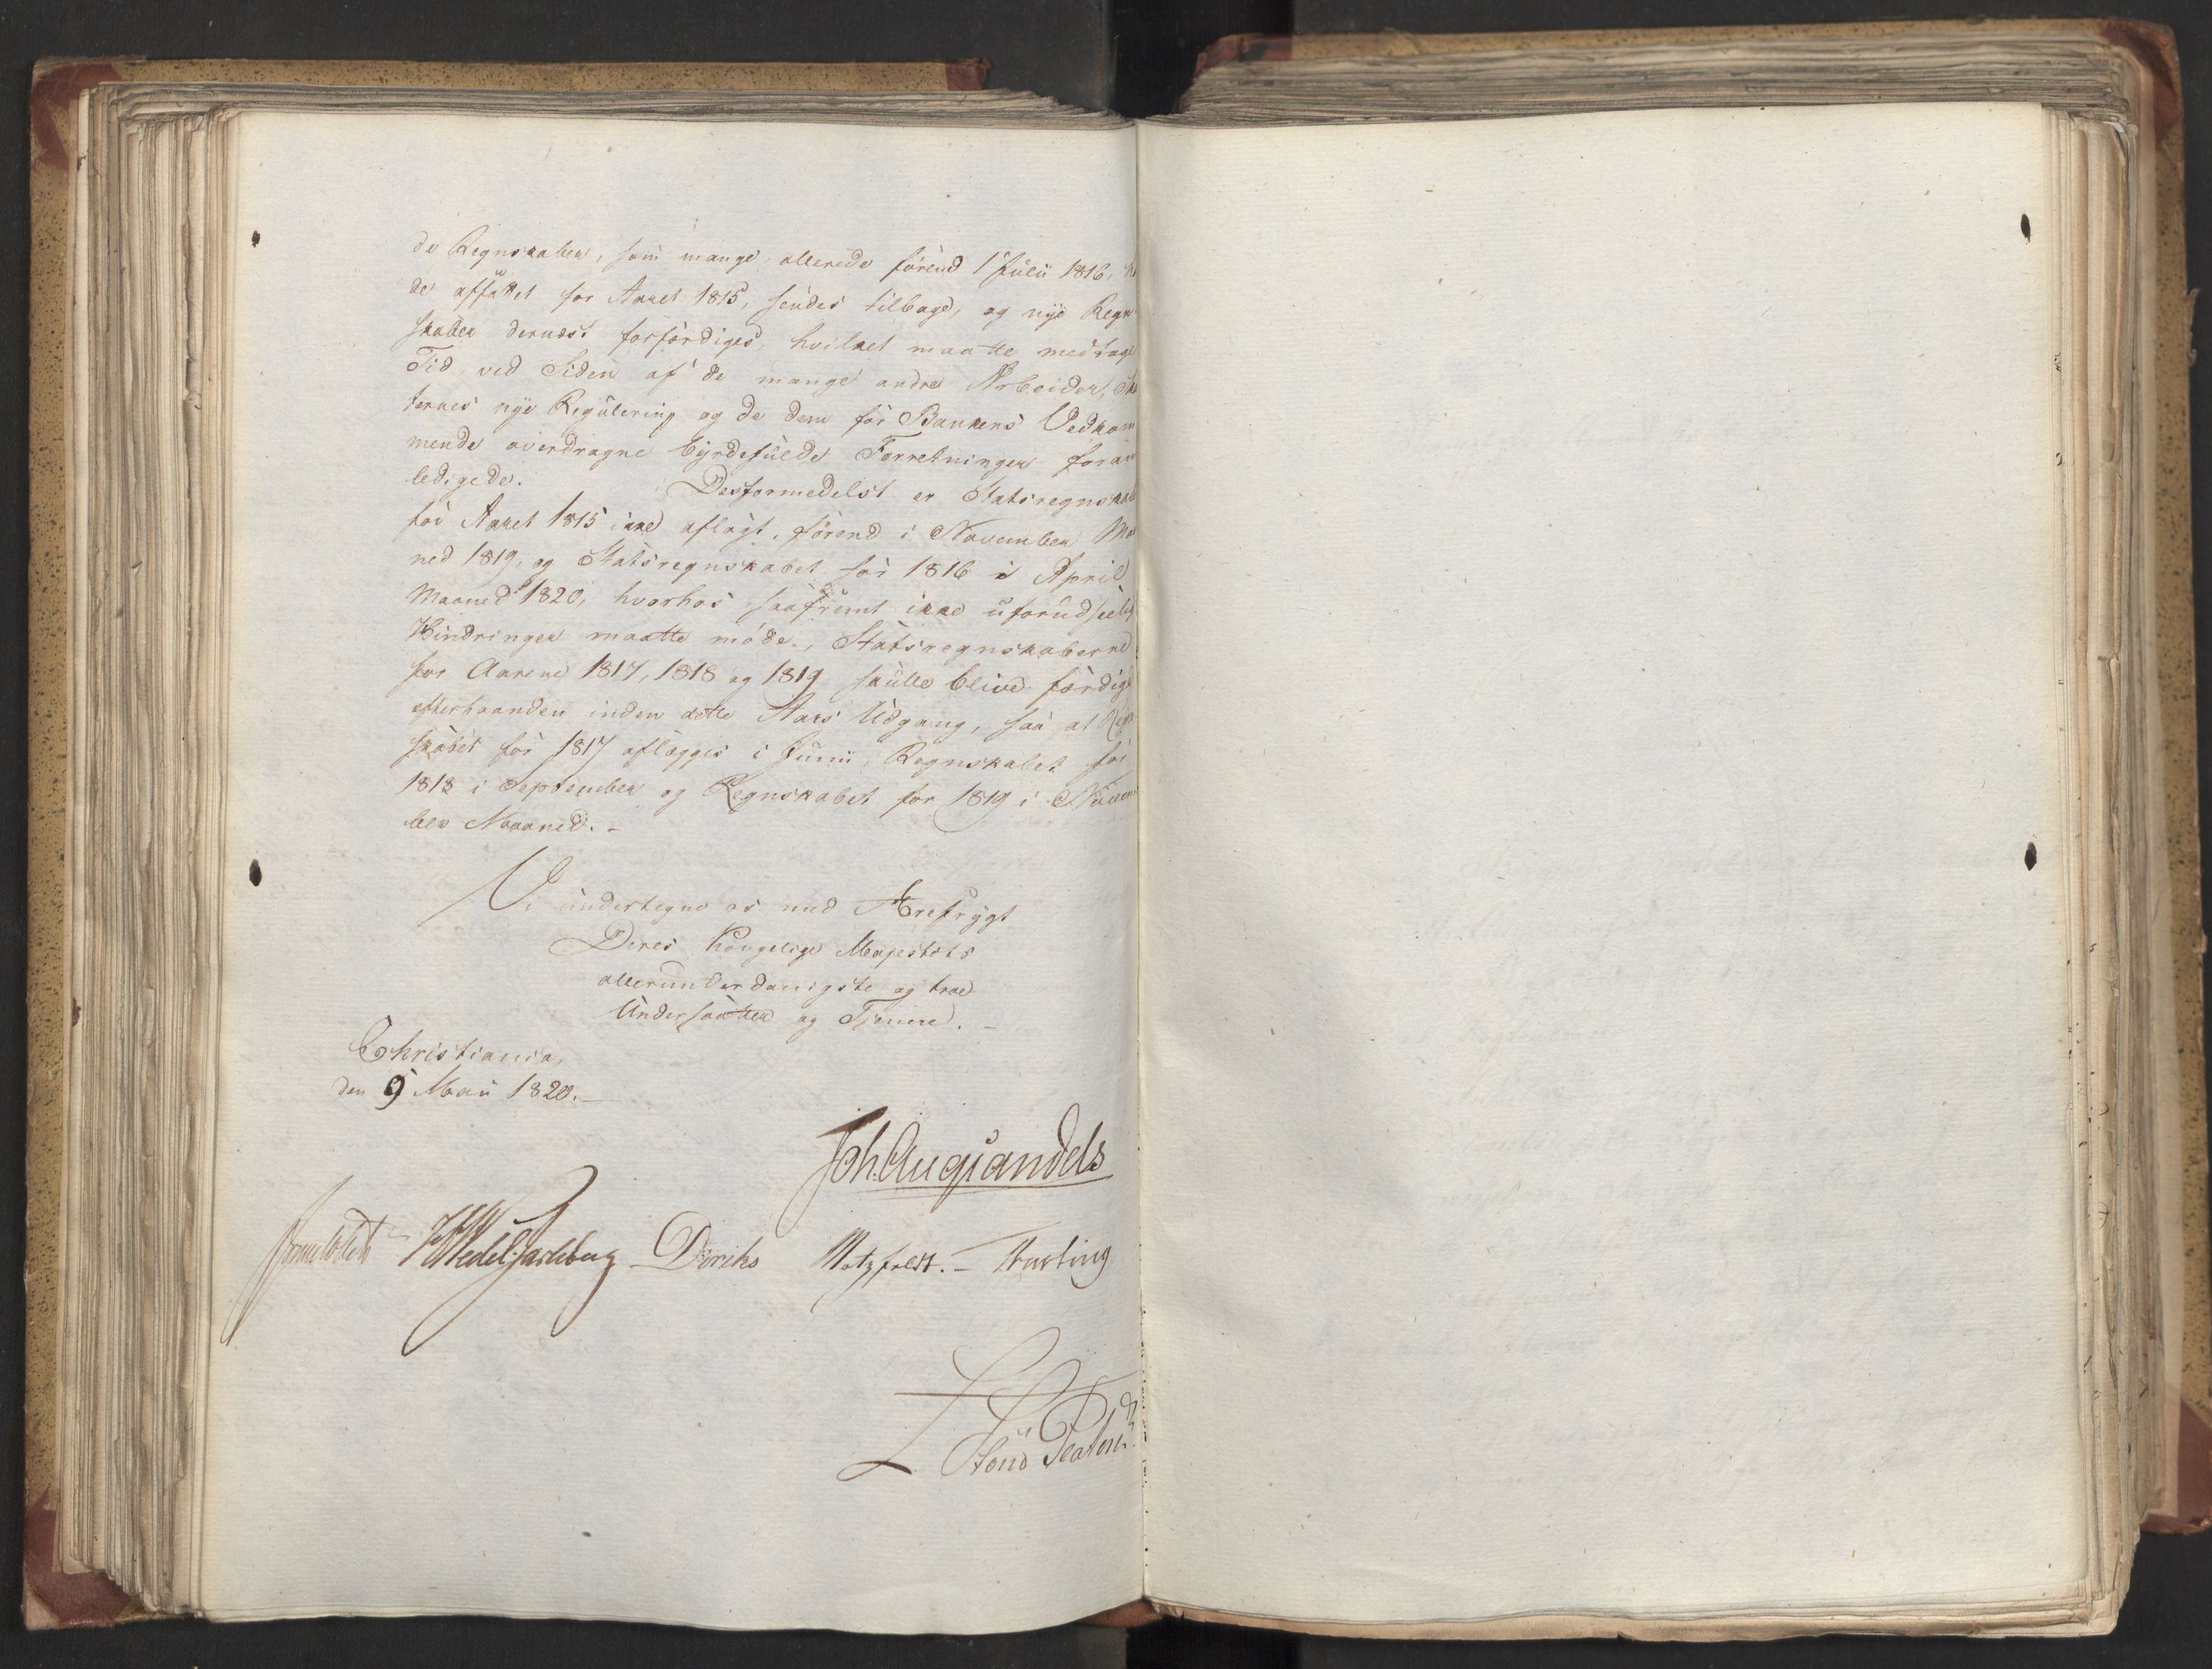 de Regnskaber, som mange allerede førend 1 Julii 1816, ha
de affattet for Aaret 1815, sendes tilbage, og nye Regn
skaber dernæst forfærdiges, hvilket maatte medtage
Tid, ved Siden af de mange andre Arbeider, Ska
ternes nye Regulering og de dem for Bankens Vedkom
mende overdragne byrdefulde Forretninger foran
ledigede. Desformedelst er Statsregnskabe
for Aaret 1815 ikke aflagt, førend i November Maa
ned 1819, og Statsregnskabet for 1816 i April
Maaned 1820, hvorhos saafremt ikke uforudseelig
Hindringer maatte møde, Statsregnskaberne
for Aarene 1817, 1818 og 1819 skulle blive færdige
efterhaanden inden dette Aars Udgang, saa at Regn
skabet for 1817 aflægges i Junii, Regnskabet for
1818 i September og Regnskabet for 1819 i Novem
ber Maaned. -
Vi undertegne os med Ærefrygt
Deres Kongelige Majestæts
allerunderdanigste og troe
Undersaatter og Tjenere. -
Christiania,
den 9 Maii 1820. -
Joh. Aug Sandels
Sommerhielm HWedel Jarlsberg Diriks Motzfeldt. - Fasting